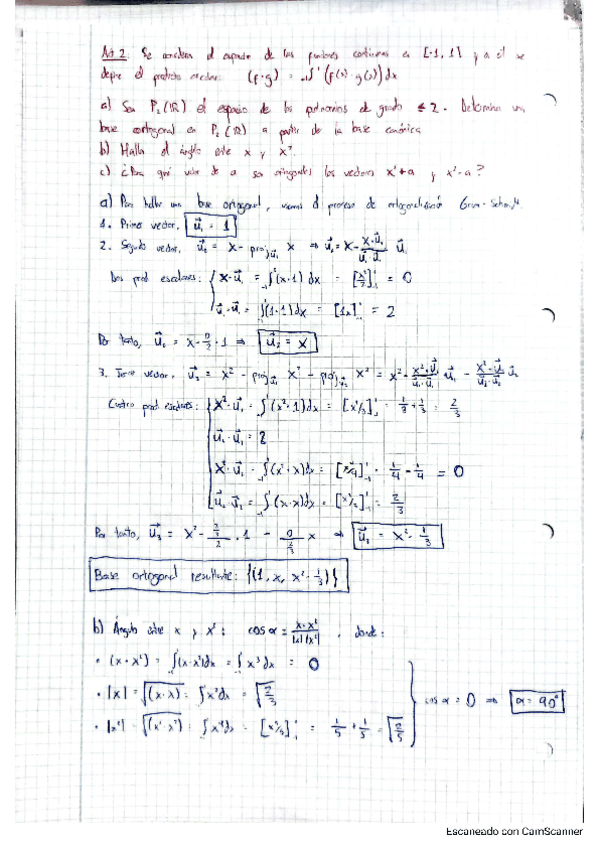 Act 2. Se considera el espacio de las funciones continuas en [-1, 1] y a él se
define el producto escalar: (f·g) = ₋₁∫¹ (f(x)·g(x)) dx
a) Sea P₂(ℝ) el espacio de los polinomios de grado ≤ 2. Determina una
base ortogonal en P₂(ℝ) a partir de la base canónica
b) Halla el ángulo entre x y x²
c) ¿Para qué valor de a son ortogonales los vectores x²+a y x²-a?
a) Para hallar una base ortogonal, usamos el proceso de ortogonalización Gram-Schmidt
1. Primer vector, u⃗₁ = 1
2. Segundo vector, u⃗₂ = x - proj_u⃗₁ x ⇒ u⃗₂ = x - (x·u⃗₁)/(u⃗₁·u⃗₁) u⃗₁
Dos prod escalares: { x·u⃗₁ = ₋₁∫¹(x·1) dx = [x²/2]₋₁¹ = 0
u⃗₁·u⃗₁ = ₋₁∫¹(1·1) dx = [1x]₋₁¹ = 2
Por tanto, u⃗₂ = x - 0/2 · 1 ⇒ u⃗₂ = x
3. Tercer vector, u⃗₃ = x² - proj_u⃗₁ x² - proj_u⃗₂ x² = x² - (x²·u⃗₁)/(u⃗₁·u⃗₁) · u⃗₁ - (x²·u⃗₂)/(u⃗₂·u⃗₂) u⃗₂
Cuatro prod escalares: { x²·u⃗₁ = ₋₁∫¹(x²·1) dx = [x³/3]₋₁¹ = 1/3 + 1/3 = 2/3
u⃗₁·u⃗₁ = 2
x²·u⃗₂ = ₋₁∫¹(x²·x) dx = [x⁴/4]₋₁¹ = 1/4 - 1/4 = 0
u⃗₂·u⃗₂ = ₋₁∫¹(x·x) dx = [x³/3]₋₁¹ = 2/3
Por tanto, u⃗₃ = x² - (2/3)/2 · 1 - 0/(2/3) x ⇒ u⃗₃ = x² - 1/3
Base ortogonal resultante: {(1, x, x² - 1/3)}
b) Ángulo entre x y x²: cos α = (x·x²)/(|x||x²|), donde:
• (x·x²) = ₋₁∫¹(x·x²) dx = ₋₁∫¹ x³ dx = 0
• |x| = √(x·x) = ₋₁∫¹ x² dx = √(2/3)
• |x²| = √(x²·x²) = ₋₁∫¹ x⁴ dx = [x⁵/5]₋₁¹ = 1/5 + 1/5 = √(2/5)
} cos α = 0 ⇒ α = 90°
Escaneado con CamScanner